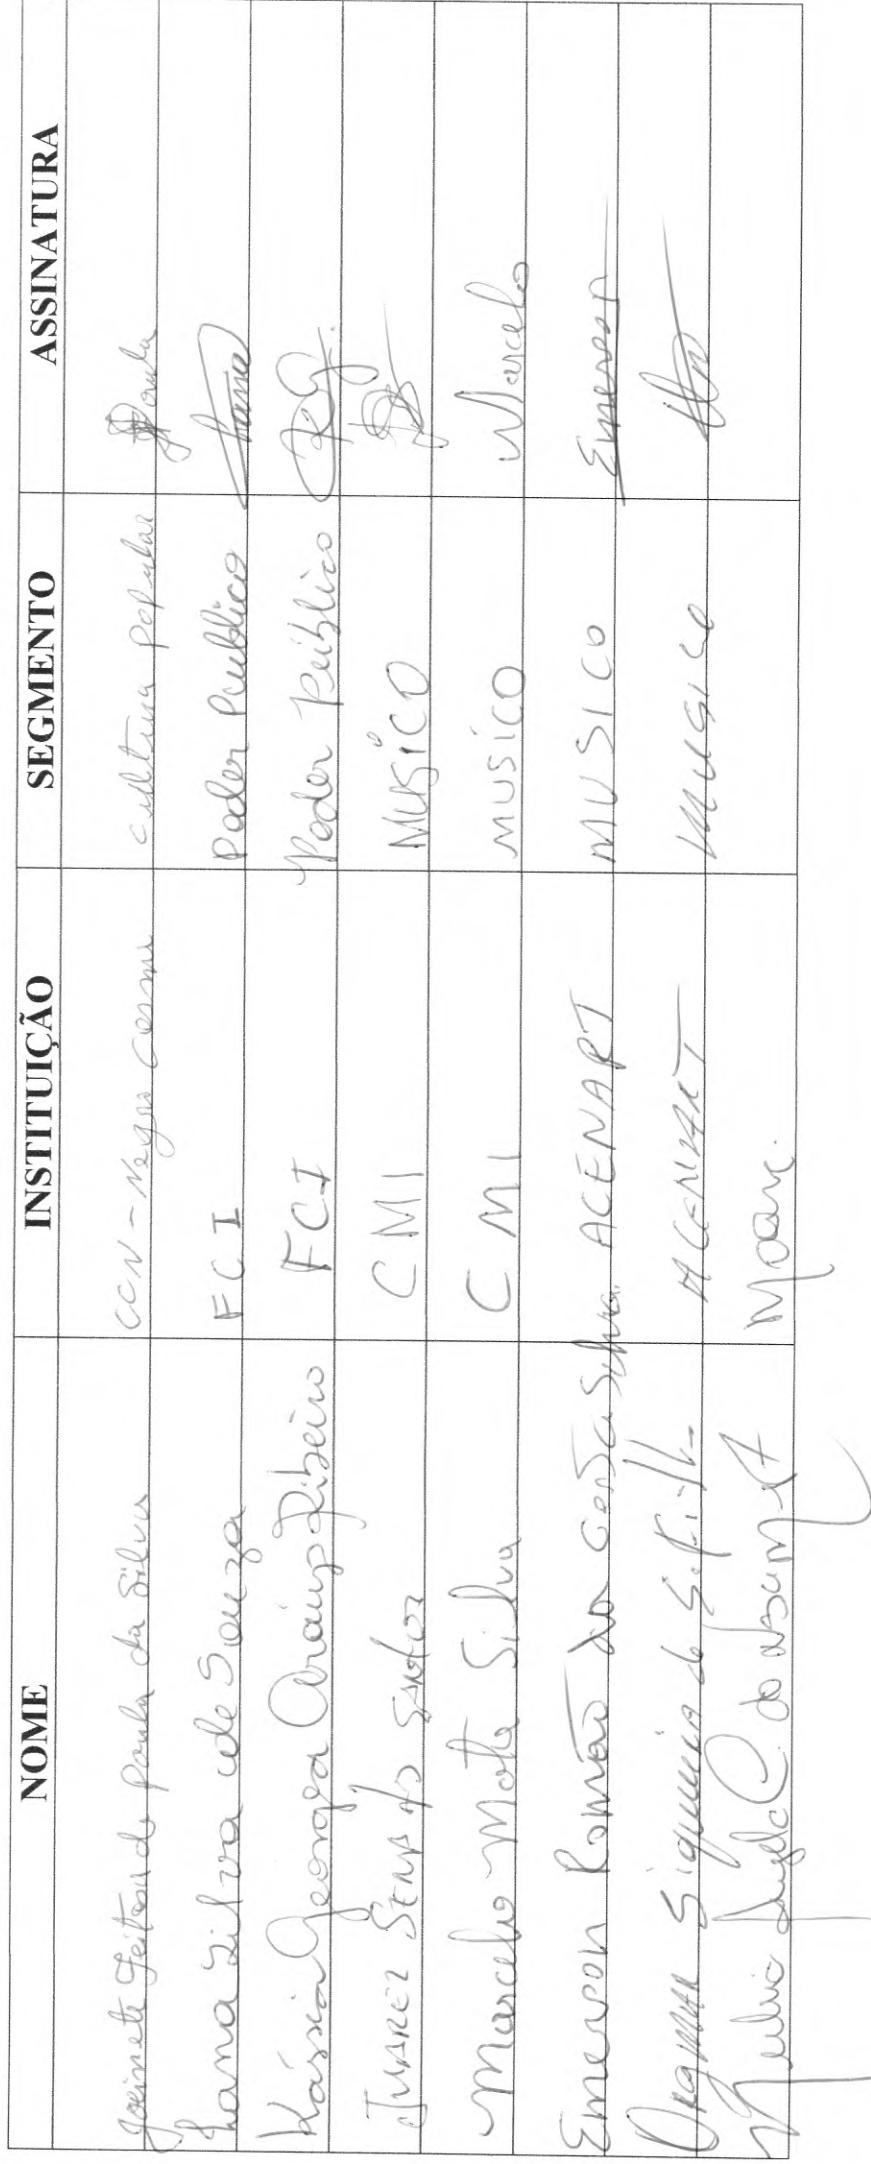 NOME INSTITUIÇÃO SEGMENTO ASSINATURA
Feitosa de Paula da Silva CCN - Negro Cosme cultura popular Paula
Lana Silva de Souza FCI Poder Publico Lana
Kássia Georgea Araújo Ribeiro FCI Poder Público
JUAREZ SENA DOS SANTOS CMI MUSICO
Marcelo Mota Silva CMI MUSICO Marcelo
Emerson Romão da Costa Silva ACENART MUSICO Emerson
Siqueira de S. Filho ACENART MUSICO
C. do Nascimento